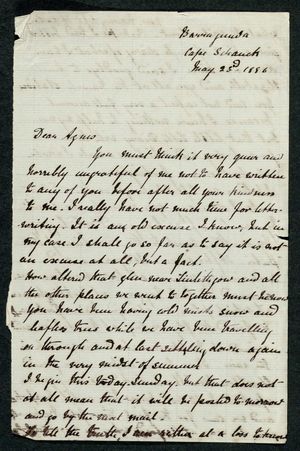 Barragunda
Cape Schanck
May 23rd 1886
Dear Agnes
You must think it very queer and
horribly ungrateful of me not to have written
to any of you before after all your kindness
to me. I really have not much time for letter
writing. It is an old excuse I know, but in
my case I shall go so far as to say it is not
an excuse at all, but a fact.
How altered that glen near Linlithgow and all
the other places we went to together must be now
You have been having cold winds snow and
leafless trees while we have been travelling
on through and at last settling down again
in the very midst of summer
I begin this today Sunday. but that does not
at all mean that it will be posted to morrow
and go by the next mail.
To tell the truth, I am rather at a loss to know